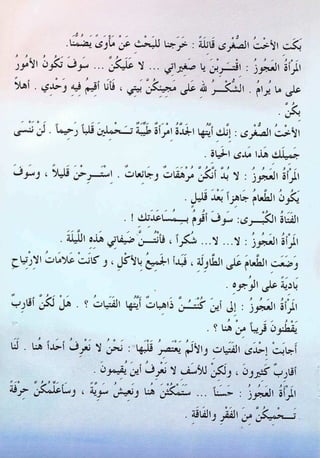 بَكَتِ الأُخْتُ الصُّغْرَى قَائِلَةً : خَرَجنا لِلبَحْثِ عَنْ مَأْوَىً يَضُمُّنَا.
المَرْأَةُ العَجُوزُ : اقْتَـرِبْنَ يا صَغِيراتِي ... لا عَلَيكُنَّ ... سَوفَ تَكُونُ الأُمُورُ
على ما يُرامُ . الشُّكْـــرُ للهِ على مَجِيئِكُنَّ بَيتِي ، فَأنَا أُقيمُ فِيهِ وَحْدِي . أهلاً
بِكُنَّ .
الأُخْتُ الصُّغْرى : إنَّكِ أيَّتُها الجَدَّةُ امرَأةٌ طَيِّبَةٌ تَـحْمِلينَ قَلباً رَحيماً . لَنْ نَنْسَى
جَميلَكِ هَذا مَدى الحَياةِ .
المَرْأةُ العَجُوزُ : لا بُدَّ أنَّكُنَّ مُرْهَقَاتٌ وجائِعاتٌ . اِسْتَـرِحْنَ قَليلاً ، وسَوفَ
يَكونُ الطَّعامُ جَاهِزاً بَعْدَ قَليلٍ .
الفَتَاةُ الكُبْـــرى: سَوفَ أقُومُ بِـمُسَـاعَدَتِكِ ! .
المَرْأةُ العَجُوزُ : لا... لا... شُكراً ، فأنْتُـــنَّ ضِيفاتِي هَذِهِ اللَّيلَةَ .
وَضَعَتِ الطَّعامَ عَلى الطَّاوِلَةِ ، فَبَدأ الجَميعُ بِالأكْلِ ، و كَانَتْ عَلامَاتُ الاِرْتِياحِ
بَادِيَةً على الوجوهِ .
المَرْأةُ العَجُوزُ : إلى أينَ كُنْتُـــنَّ ذَاهِباتٌ أيَّتُها الفَتَياتُ ؟ . هَلْ لَكُنَّ أقَارِبٌ
يَقْطُنونَ قَريباً مِنْ هُنا ؟ .
أجابَت إحْدَى الفَتَياتِ والألَمُ يَعْتَصِرُ قَلْبَها : نَحْنُ لا نَعْرِفُ أحَداً هُنا . لَنَا
أقارِبٌ كَثيرونَ ، ولَكِنْ لِلأسَفِ لا نَعْرِفُ أينَ يُقيمُونَ .
المَرْأةُ العَجُوزُ : حَسَناً ... سَتَمكُثْنَ هُنا ونَعِيشُ سَوِيَّةً ، وسَأُعَلِّمُكُنَّ حِرْفَةً
تَـحْمِيكُنَّ مِنَ الفَقْرِ والفَاقَةِ .